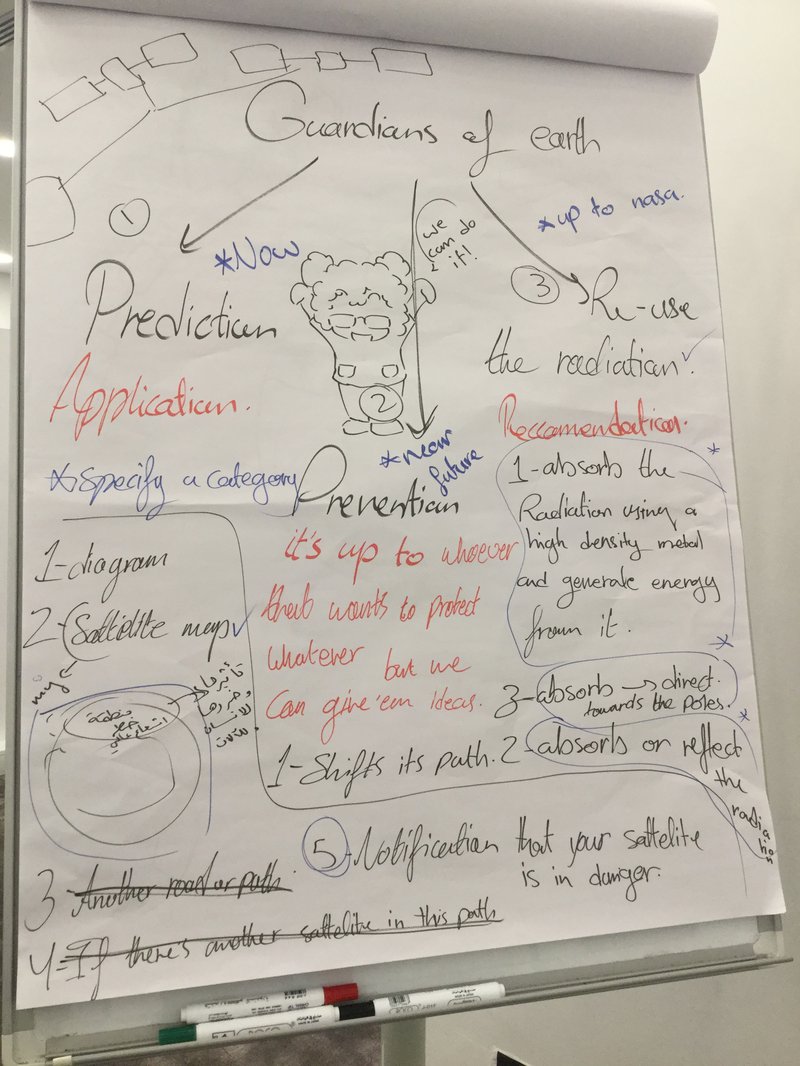 Guardians of earth
1
*Now
Prediction
Application.
*specify a category
1-diagram
2-Sattelite map
my
منطقة
خطر
اشعاعي
3-Another road or path.
4-If there's another sattelite in this path
5-Notification that your sattelite
is in danger.
we
can do
it!
2
*near
future
Prevention
it's up to whoever
that wants to protect
whatever but we
can give'em ideas.
1-Shifts its path.
2-absorb or reflect
the
radiation
3-absorb → direct.
towards the poles.
*up to nasa.
3
Re-use
the radiation.
Reccomendation.
1-absorb the
Radiation using a
high density metal
and generate energy
from it.